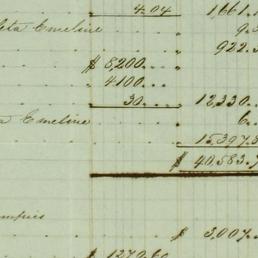 4.04 1,661.
eta Emeline 9.
922.
$ 8,200..
4100...
30.... 12,330...
a Emeline 6.
15,397.3
$ 40,583.7
$ 3,007.
$ 1270.60